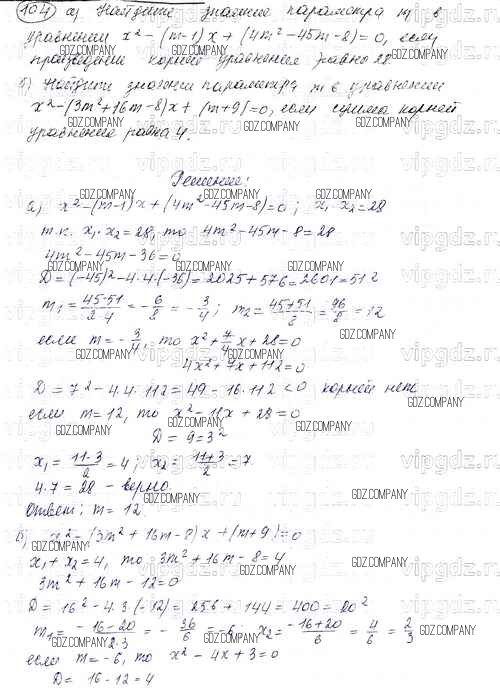 104 а) Найдите значение параметра m в
уравнении x² - (m-1)x + (4m² - 45m - 8) = 0, если
произведение корней уравнения равно 28.
б) Найдите значения параметра m в уравнении
x² - (3m² + 16m - 8)x + (m+9) = 0, если сумма корней
уравнения равна 4.
Решение:
а) x² - (m-1)x + (4m² - 45m - 8) = 0; x₁·x₂ = 28
т.к. x₁·x₂ = 28, то 4m² - 45m - 8 = 28
4m² - 45m - 36 = 0
D = (-45)² - 4·4·(-36) = 2025 + 576 = 2601 = 51²
m₁ = (45-51)/(2·4) = -6/8 = -3/4; m₂ = (45+51)/8 = 96/8 = 12
если m = -3/4, то x² + 7/4 x + 28 = 0
4x² + 7x + 112 = 0
D = 7² - 4·4·112 = 49 - 16·112 < 0 корней нет
если m = 12, то x² - 11x + 28 = 0
D = 9 = 3²
x₁ = (11-3)/2 = 4; x₂ = (11+3)/2 = 7
4·7 = 28 - верно.
Ответ: m = 12
б) x² - (3m² + 16m - 8)x + (m+9) = 0
x₁ + x₂ = 4, то 3m² + 16m - 8 = 4
3m² + 16m - 12 = 0
D = 16² - 4·3·(-12) = 256 + 144 = 400 = 20²
m₁ = (-16-20)/(2·3) = -36/6 = -6; x₂ = (-16+20)/6 = 4/6 = 2/3
если m = -6, то x² - 4x + 3 = 0
D = 16 - 12 = 4